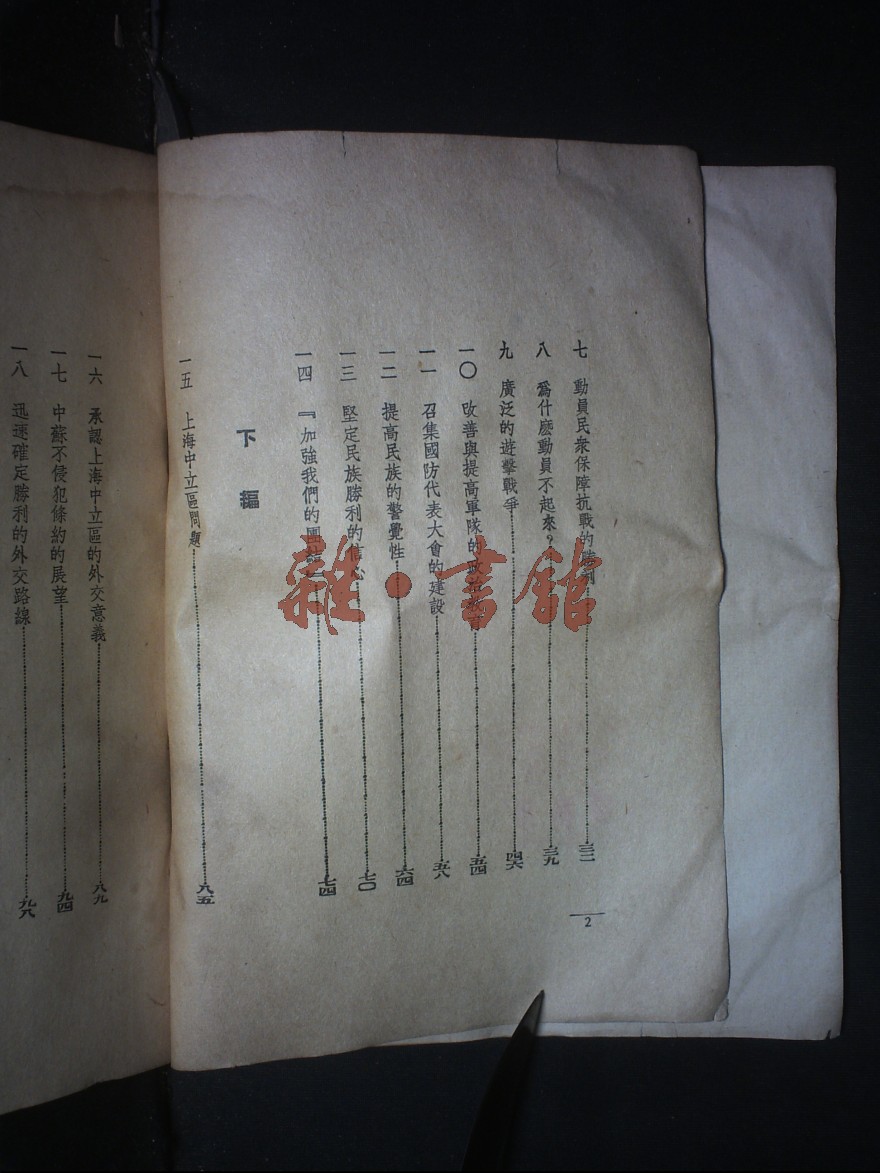 七 動員民衆保障抗戰的勝利 三二
八 爲什麽動員不起來？ 三九
九 廣泛的遊擊戰爭 四六
一〇 改善與提高軍隊的政治 五四
一一 召集國防代表大會的建設 五八
一二 提高民族的警覺性 六四
一三 堅定民族勝利的信心 七〇
一四 『加強我們的團結』 七四
下編
一五 上海中立區問題 八五
2
一六 承認上海中立區的外交意義 八九
一七 中蘇不侵犯條約的展望 九四
一八 迅速確定勝利的外交路線 九八
雜·書館